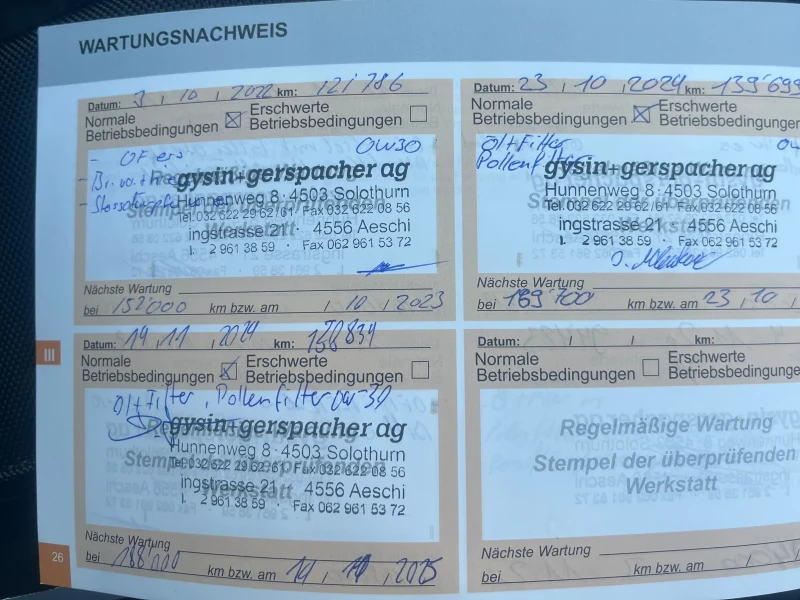 WARTUNGSNACHWEIS
Datum: 3 , 10 , 2022 km: 121'786
Normale Betriebsbedingungen ☒ Erschwerte Betriebsbedingungen ☐
0W30
gysin+gerspacher ag
Hunnenweg 8 · 4503 Solothurn
Tel. 032 622 29 62/61 · Fax 032 622 08 56
ingstrasse 21 · 4556 Aeschi
2 961 38 59 · Fax 062 961 53 72
Nächste Wartung
bei 152'000 km bzw. am / 10 , 2023
Datum: 23 , 10 , 2024 km: 139'699
Normale Betriebsbedingungen ☒ Erschwerte Betriebsbedingungen
Öl + Filter
Pollenfilter
gysin+gerspacher ag
Hunnenweg 8 · 4503 Solothurn
Tel. 032 622 29 62/61 Fax 032 622 08 56
ingstrasse 21 · 4556 Aeschi
2 961 38 59 · Fax 062 961 53 72
Nächste Wartung
bei 169'700 km bzw. am 23 , 10 /
III
Datum: 14 , 11 , 2024 km:
Normale Betriebsbedingungen ☒ Erschwerte Betriebsbedingungen ☐
Öl + Filter , Pollenfilter 0W-30
gysin+gerspacher ag
Hunnenweg 8 · 4503 Solothurn
Tel. 032 622 29 62/61 · Fax 032 622 08 56
ingstrasse 21 · 4556 Aeschi
2 961 38 59 · Fax 062 961 53 72
Nächste Wartung
bei 188'000 km bzw. am 14 / 11 , 2025
Datum: / / km:
Normale Betriebsbedingungen ☐ Erschwerte Betriebsbedingungen
Regelmäßige Wartung
Stempel der überprüfenden
Werkstatt
Nächste Wartung
bei km bzw. am / /
26